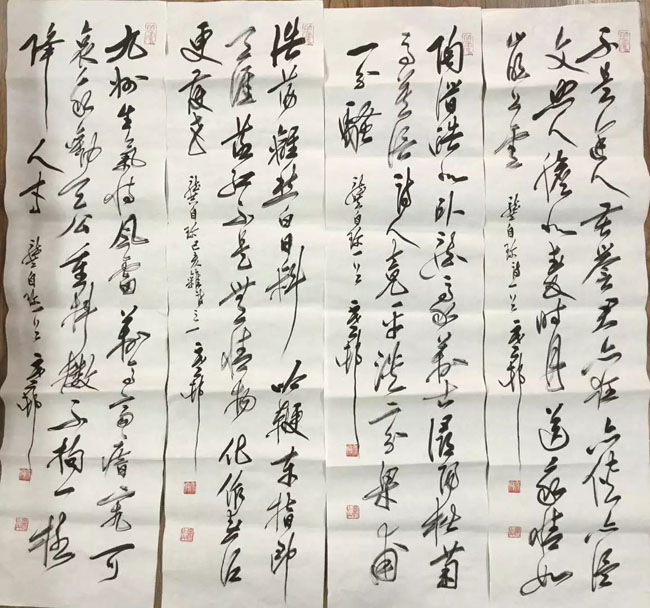 不是逢人苦誉君亦狂亦侠亦温
文照人膽似秦时月送我情如
嶺上雲 龔自珍诗一首
陶潜酷似卧龍豪萬古潯陽松菊
高莫信詩人竟平淡二分梁甫
一分騷 龔自珍一首
浩荡離愁白日斜吟鞭东指即
天涯落红不是無情物化作春泥
更護花 龔自珍己亥雜诗之一
九州生氣恃風雷萬馬齊瘖究可
哀我勸天公重抖擻不拘一格
降人才 龔自珍一首